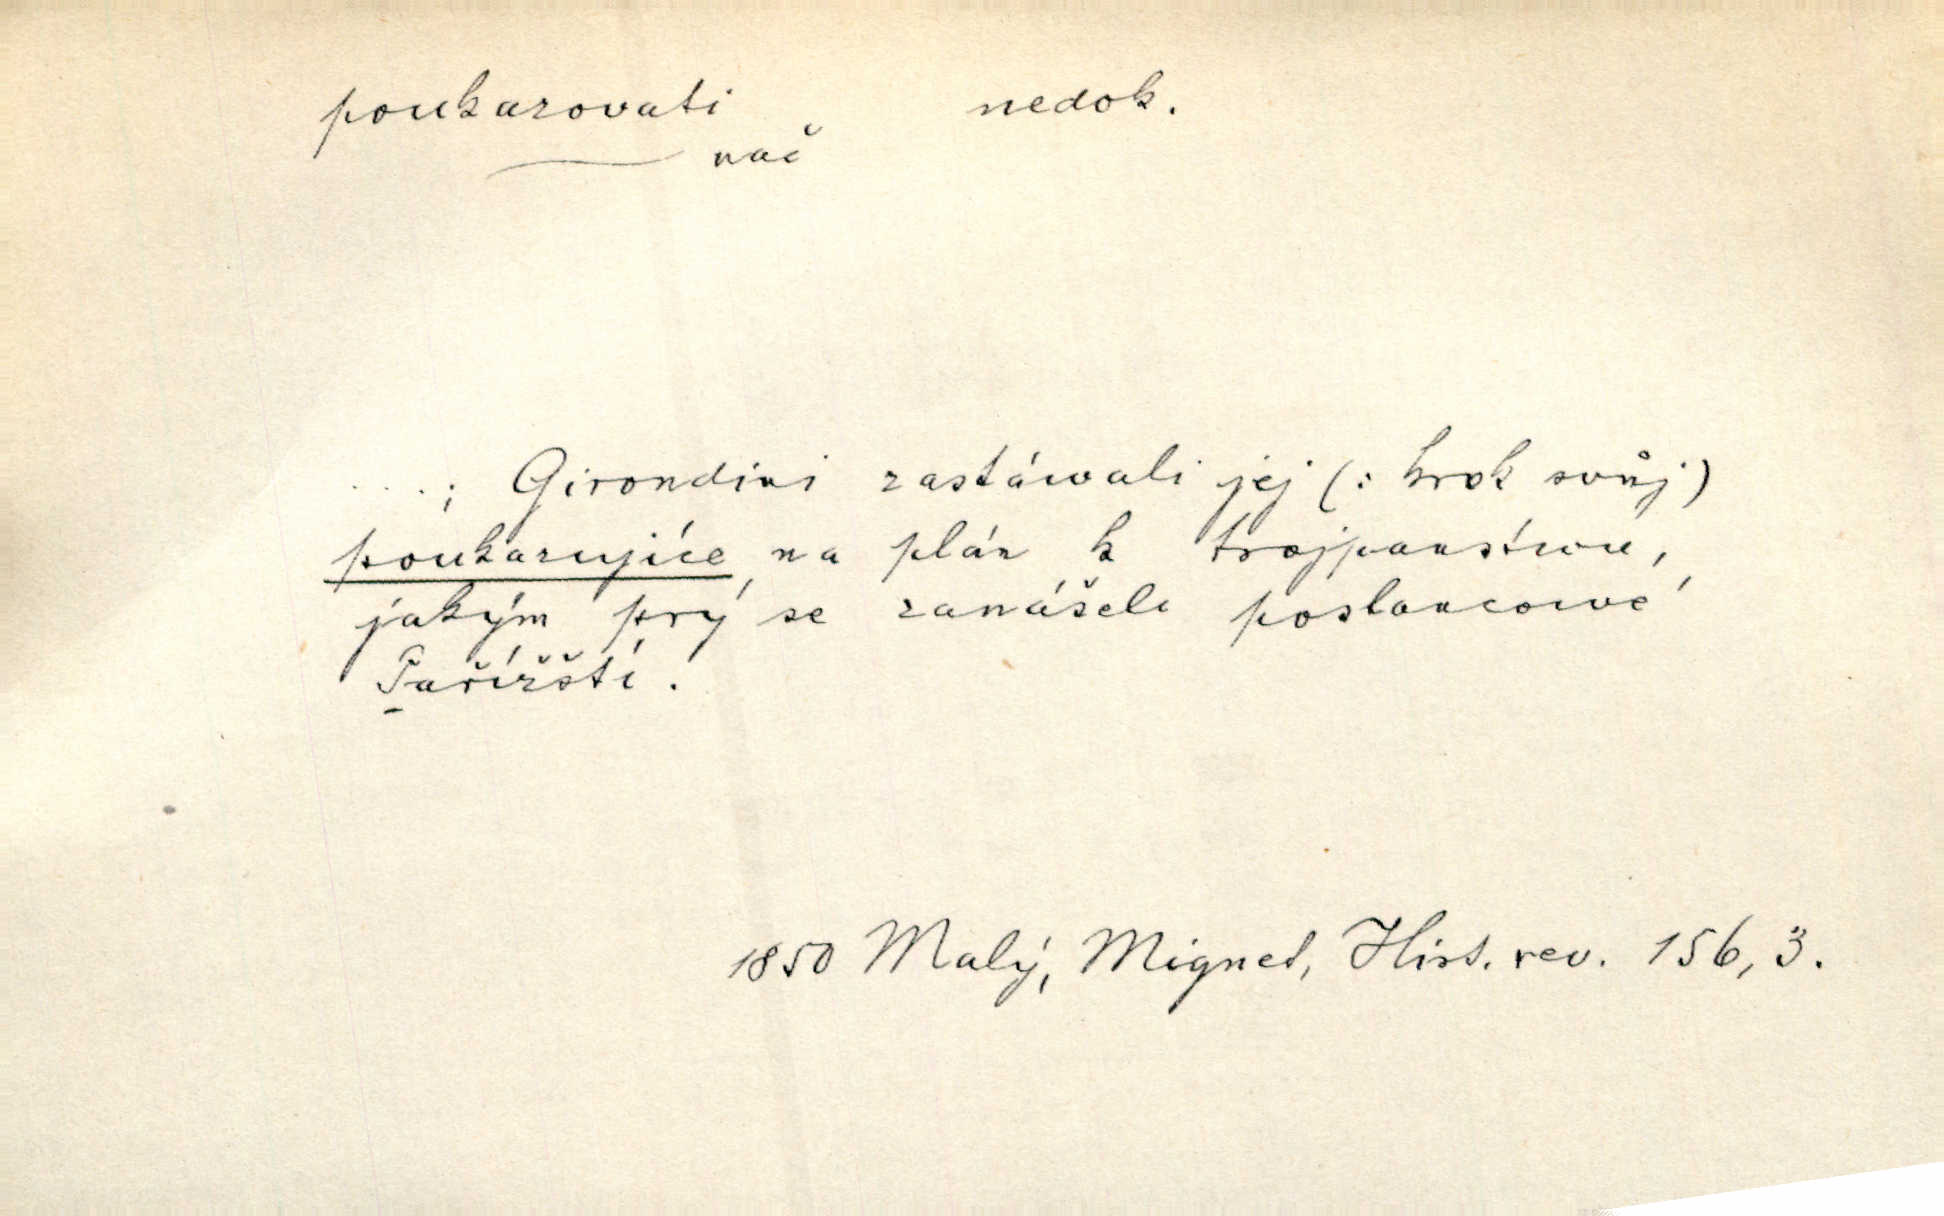 poukazovati nedok.
nač
....; Girondíni zastáwali jej (: krok svůj)
poukazujíce na plán k trojpanstwu,
jakým prý se zanášeli poslancowé
Pařížští.
1850 Malý, Mignet, Hist. rev. 156, 3.